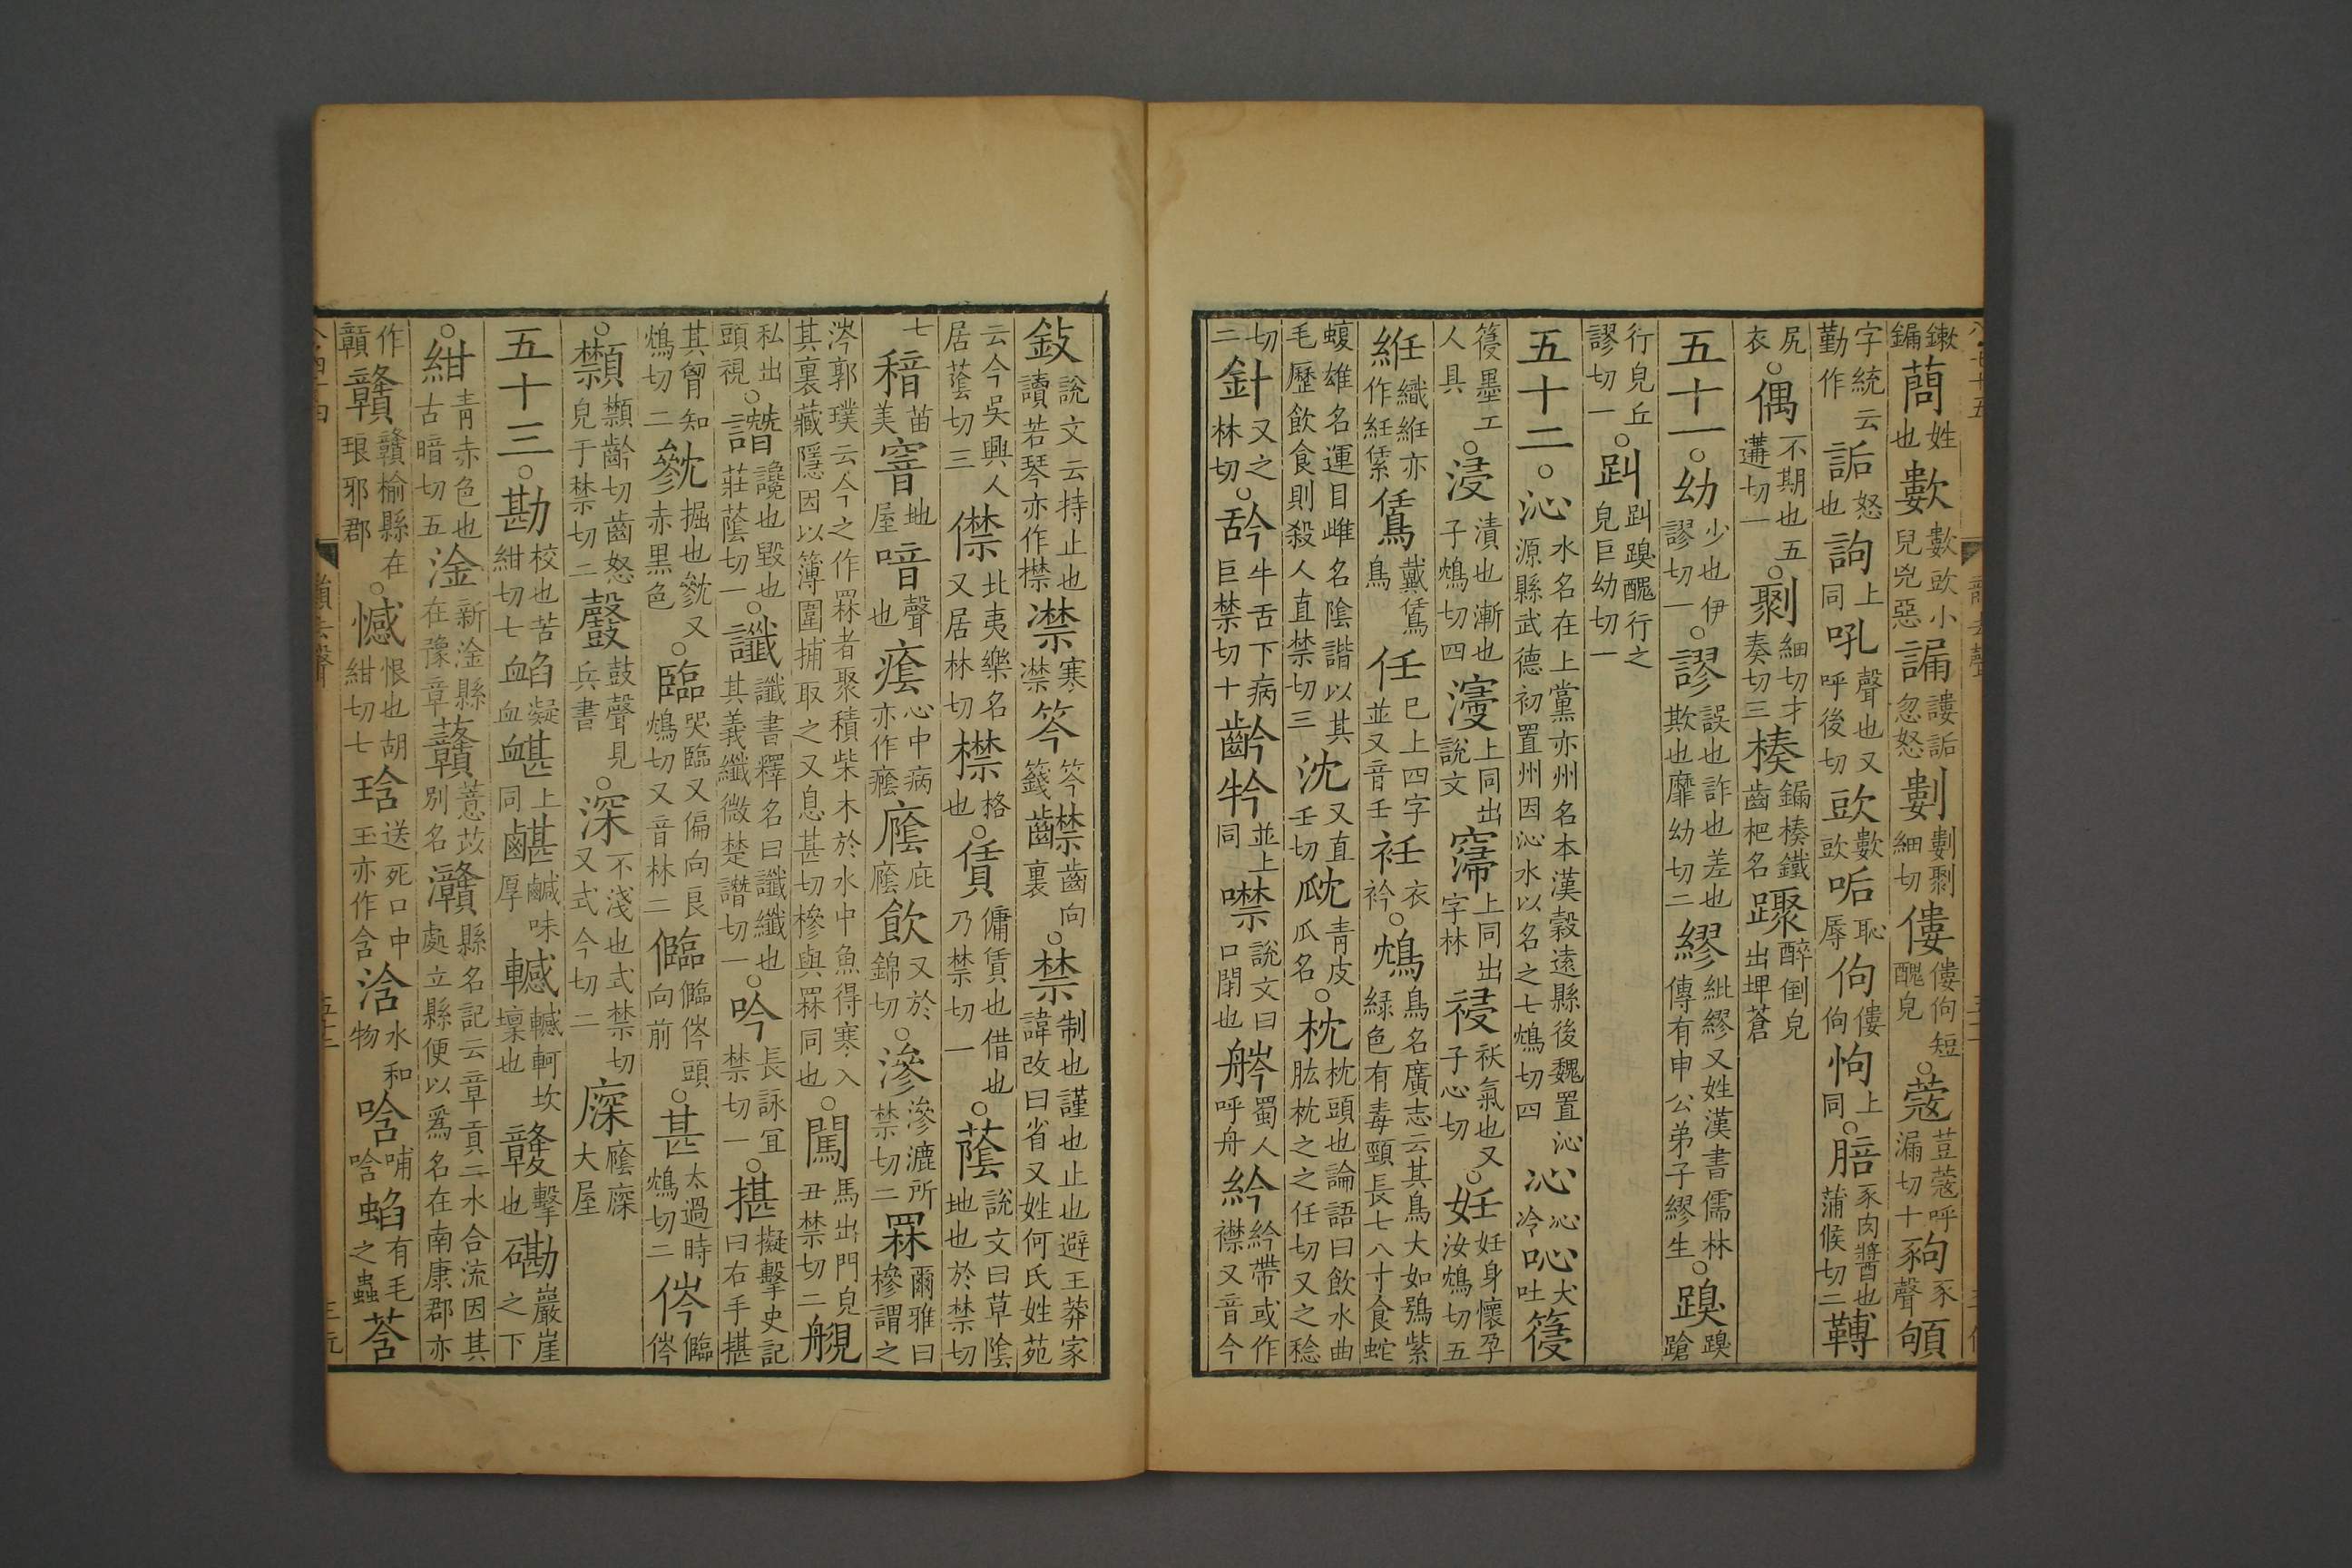 鏉鎘䔷姓也㪹㪹㰯小兒兇惡䛢謱詬忽怒剅剅剹細切僂僂佝短醜皃○蔻荳蔻呼漏切十豞豕聲䪷
勤字統云作詬怒也訽上同吼聲也又呼後切㰯㪹㰯㖃恥辱佝僂佝怐上同○䏽豕肉醬也蒲候切二䩣
尻衣○偶不期也五遘切一○剹細切才奏切三楱鎘楱鐵齒杷名𨄕醉倒皃出埤蒼
五十一○幼少也伊謬切一○謬誤也詐也差也欺也靡幼切二繆紕繆又姓漢書儒林傳有申公弟子繆生○䠗䠗蹌
行皃丘謬切一○䟵䟵䠗醜行之皃巨幼切一
五十二○沁水名在上黨亦州名本漢穀遠縣後魏置沁源縣武德初置州因沁水以名之七鴆切四沁沁冷吣犬吐寑
寑墨工人具○浸漬也漸也子鴆切四濅上同出說文䆮上同出字林祲祅氣也又子心切○妊妊身懷孕汝鴆切五
絍織絍亦作紝䋕鵀戴鵀鳥任已上四字並又音壬衽衣衿○鴆鳥名廣志云其鳥大如鴞紫綠色有毒頸長七八寸食蛇
蝮雄名運目雌名陰諧以其毛歷飲食則殺人直禁切三沈又直壬切㽎青皮瓜名○枕枕頭也論語曰飲水曲肱枕之之任切又之稔
切二針又之林切○㕂牛舌下病巨禁切十齡牞並上同噤說文曰口閉也䑤蜀人呼舟紟紟帶或作襟又音今
㪁說文云持止也讀若琴亦作㩒澿寒澿笒笒籤齽齒向裏○禁制也謹也止也避王莽家諱改曰省又姓何氏姓苑
云今吳興人居蔭切三僸北夷樂名又居林切㯲格也○賃傭賃也借也乃禁切一○蔭說文曰草陰地也於禁切
七䅧苗美窨地屋喑聲也㾾心中病亦作癊廕庇廕飲又於錦切○滲滲漉所禁切二罧爾雅曰槮謂之
涔郭璞云今之作罧者聚積柴木於水中魚得寒入其裏藏隱因以簿圍捕取之又息甚切槮與罧同也○闖馬出門皃丑禁切二覾
私出頭視○譖讒也毀也莊蔭切一○讖讖書釋名曰讖纖也其義纖微楚譖切一○吟長詠宜禁切一○揕擬擊史記曰右手揕
其胷知鴆切二䫴掘也䫴又赤黑色○臨哭臨又偏向良鴆切又音林二㒏㒏仱頭向前○甚太過時鴆切二仱㒏仱
○顉顉齡切齒怒皃于禁切二鼞鼓聲見兵書○深不淺也式禁切又式今切二㾕廕㾕大屋
五十三○勘校也苦紺切七衉凝血䘓上同䶢鹹味厚轗轗軻坎壈也𪔵擊也磡巖崖之下
○紺青赤色也古暗切五淦新淦縣在豫章贛薏苡別名灨縣名記云章貢二水合流因其處立縣便以爲名在南康郡亦
作贑贛贛榆縣在琅邪郡○憾恨也胡紺切七琀送死口中玉亦作含浛水和物唅哺唅䗙有毛之蟲莟